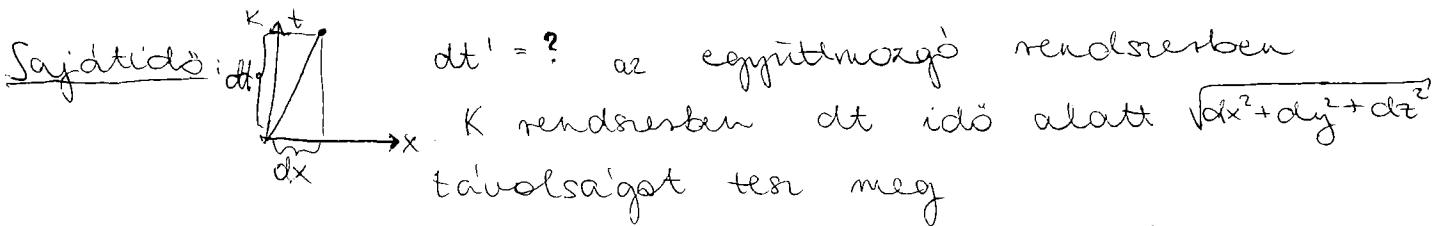 Sajátidő: K t dt dx x dt' = ? az együttmozgó rendszerben
K rendszerben dt idő alatt √(dx² + dy² + dz²)
távolságot tesz meg